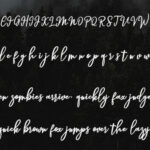 C D E F G H I J K L M N O P Q R S T U V W
e f g h i j k l m n o p q r s t u v w
en zombies arrive, quickly fax judge
quick brown fox jumps over the lazy